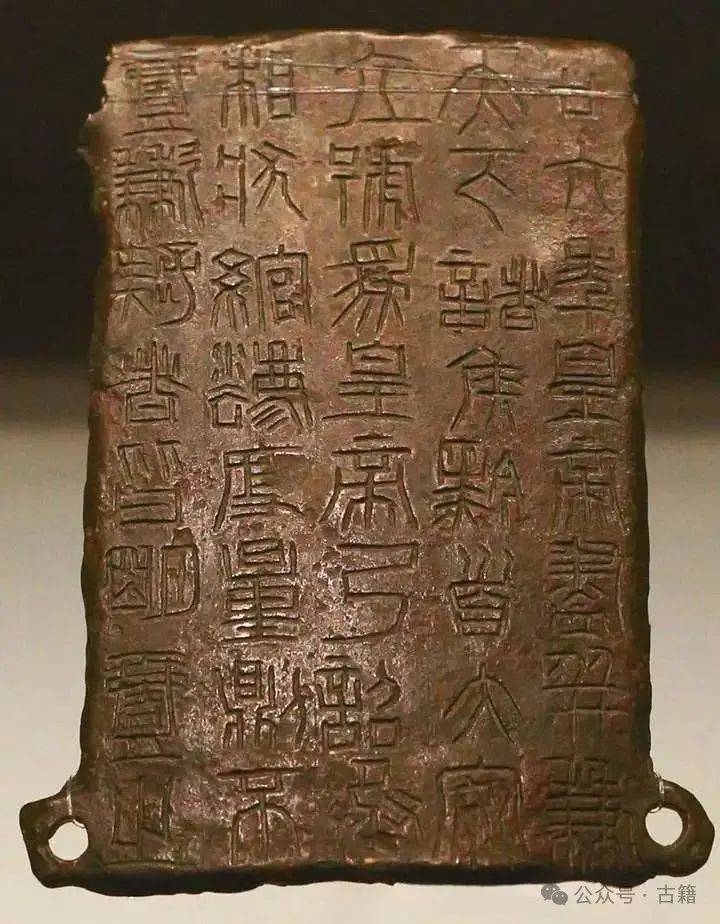 廿六年皇帝盡并兼
天下諸侯黔首大安
立號為皇帝乃詔丞
相狀綰灋度量則不
壹歉疑者皆明壹之
公众号·古籍